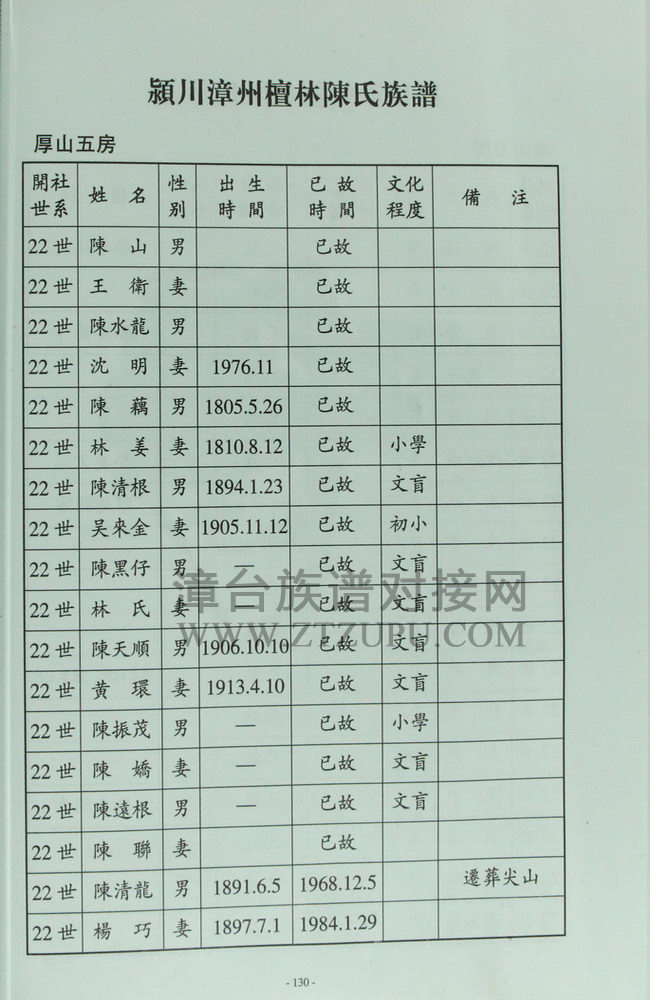 潁川漳州檀林陳氏族譜
厚山五房
開社世系 姓名 性别 出生時間 已故時間 文化程度 備注
22世 陳山 男 已故
22世 王衛 妻 已故
22世 陳水龍 男 已故
22世 沈明 妻 1976.11 已故
22世 陳藕 男 1805.5.26 已故
22世 林姜 妻 1810.8.12 已故 小學
22世 陳清根 男 1894.1.23 已故 文盲
22世 吴來金 妻 1905.11.12 已故 初小
22世 陳黑仔 男 — 已故 文盲
22世 林氏 妻 — 已故 文盲
22世 陳天順 男 1906.10.10 已故 文盲
22世 黃環 妻 1913.4.10 已故 文盲
22世 陳振茂 男 — 已故 小學
22世 陳嬌 妻 — 已故 文盲
22世 陳遠根 男 — 已故 文盲
22世 陳聯 妻 已故
22世 陳清龍 男 1891.6.5 1968.12.5 遷葬尖山
22世 楊巧 妻 1897.7.1 1984.1.29
漳台族谱对接网
WWW.ZTZUPU.COM
- 130 -